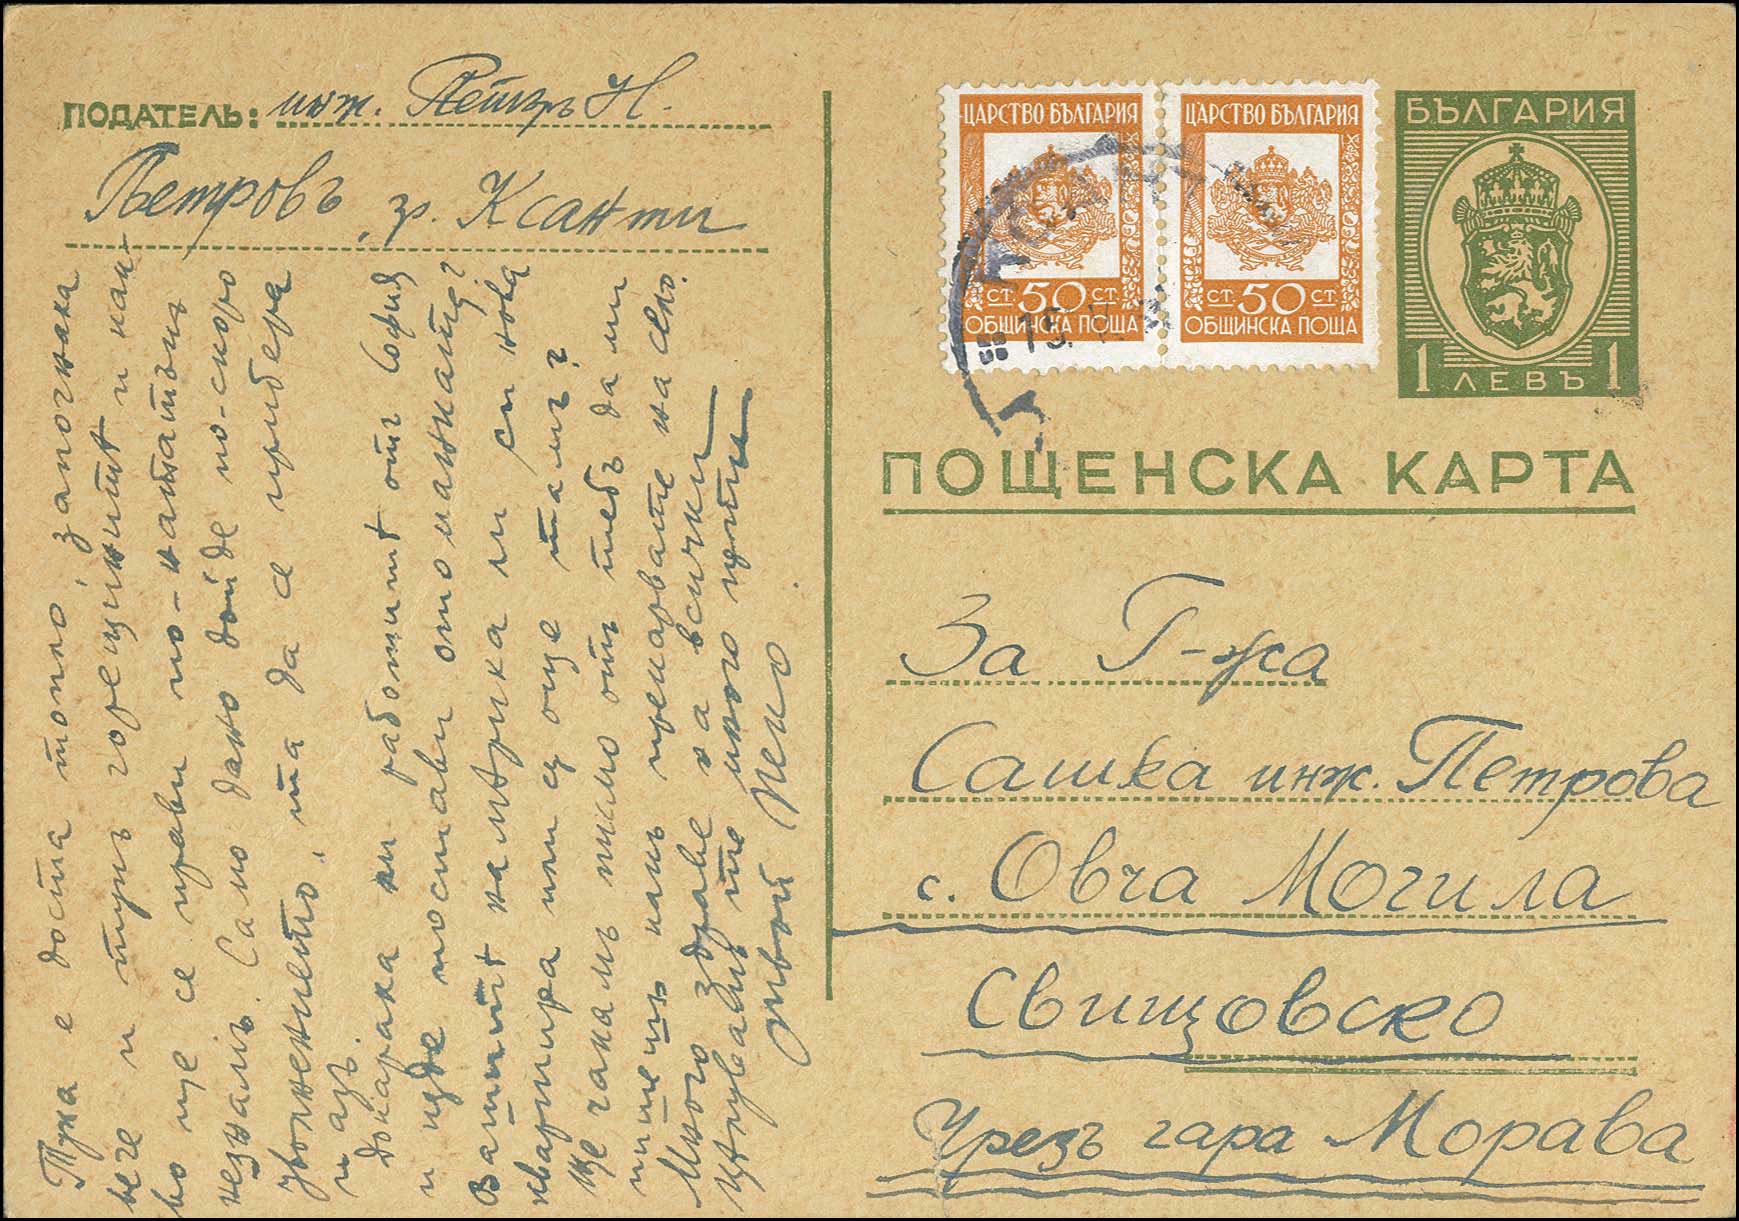 ПОДАТЕЛЬ: инж. Петъръ Н.
Петровъ, гр. Ксанти
Тука е доста топло, започнаха
вече и тукъ горещинитѣ и как-
во ще се прави по-нататъкъ
незнамъ. Само дано дойде по-скоро
уволнението, та да се прибера
и азъ.
Докараха ли работитѣ отъ София
и кѫде постави отоманката?
Вашитѣ намѣриха ли си нова
квартира или сѫ още тамъ?
Ще чакамъ писмо отъ тебъ да ми
пишешъ какъ прекарвате на село.
Много здраве на всички
цѣлувамъ те много пѫти
твой Пешо.
ЦАРСТВО БЪЛГАРИЯ
СТ. 50 СТ.
ОБЩИНСКА ПОЩА
ЦАРСТВО БЪЛГАРИЯ
СТ. 50 СТ.
ОБЩИНСКА ПОЩА
БЪЛГАРИЯ
1 ЛЕВЪ 1
ПОЩЕНСКА КАРТА
За Г-жа
Сашка инж. Петрова
с. Овча Могила
Свищовско
Чрезъ гара Морава